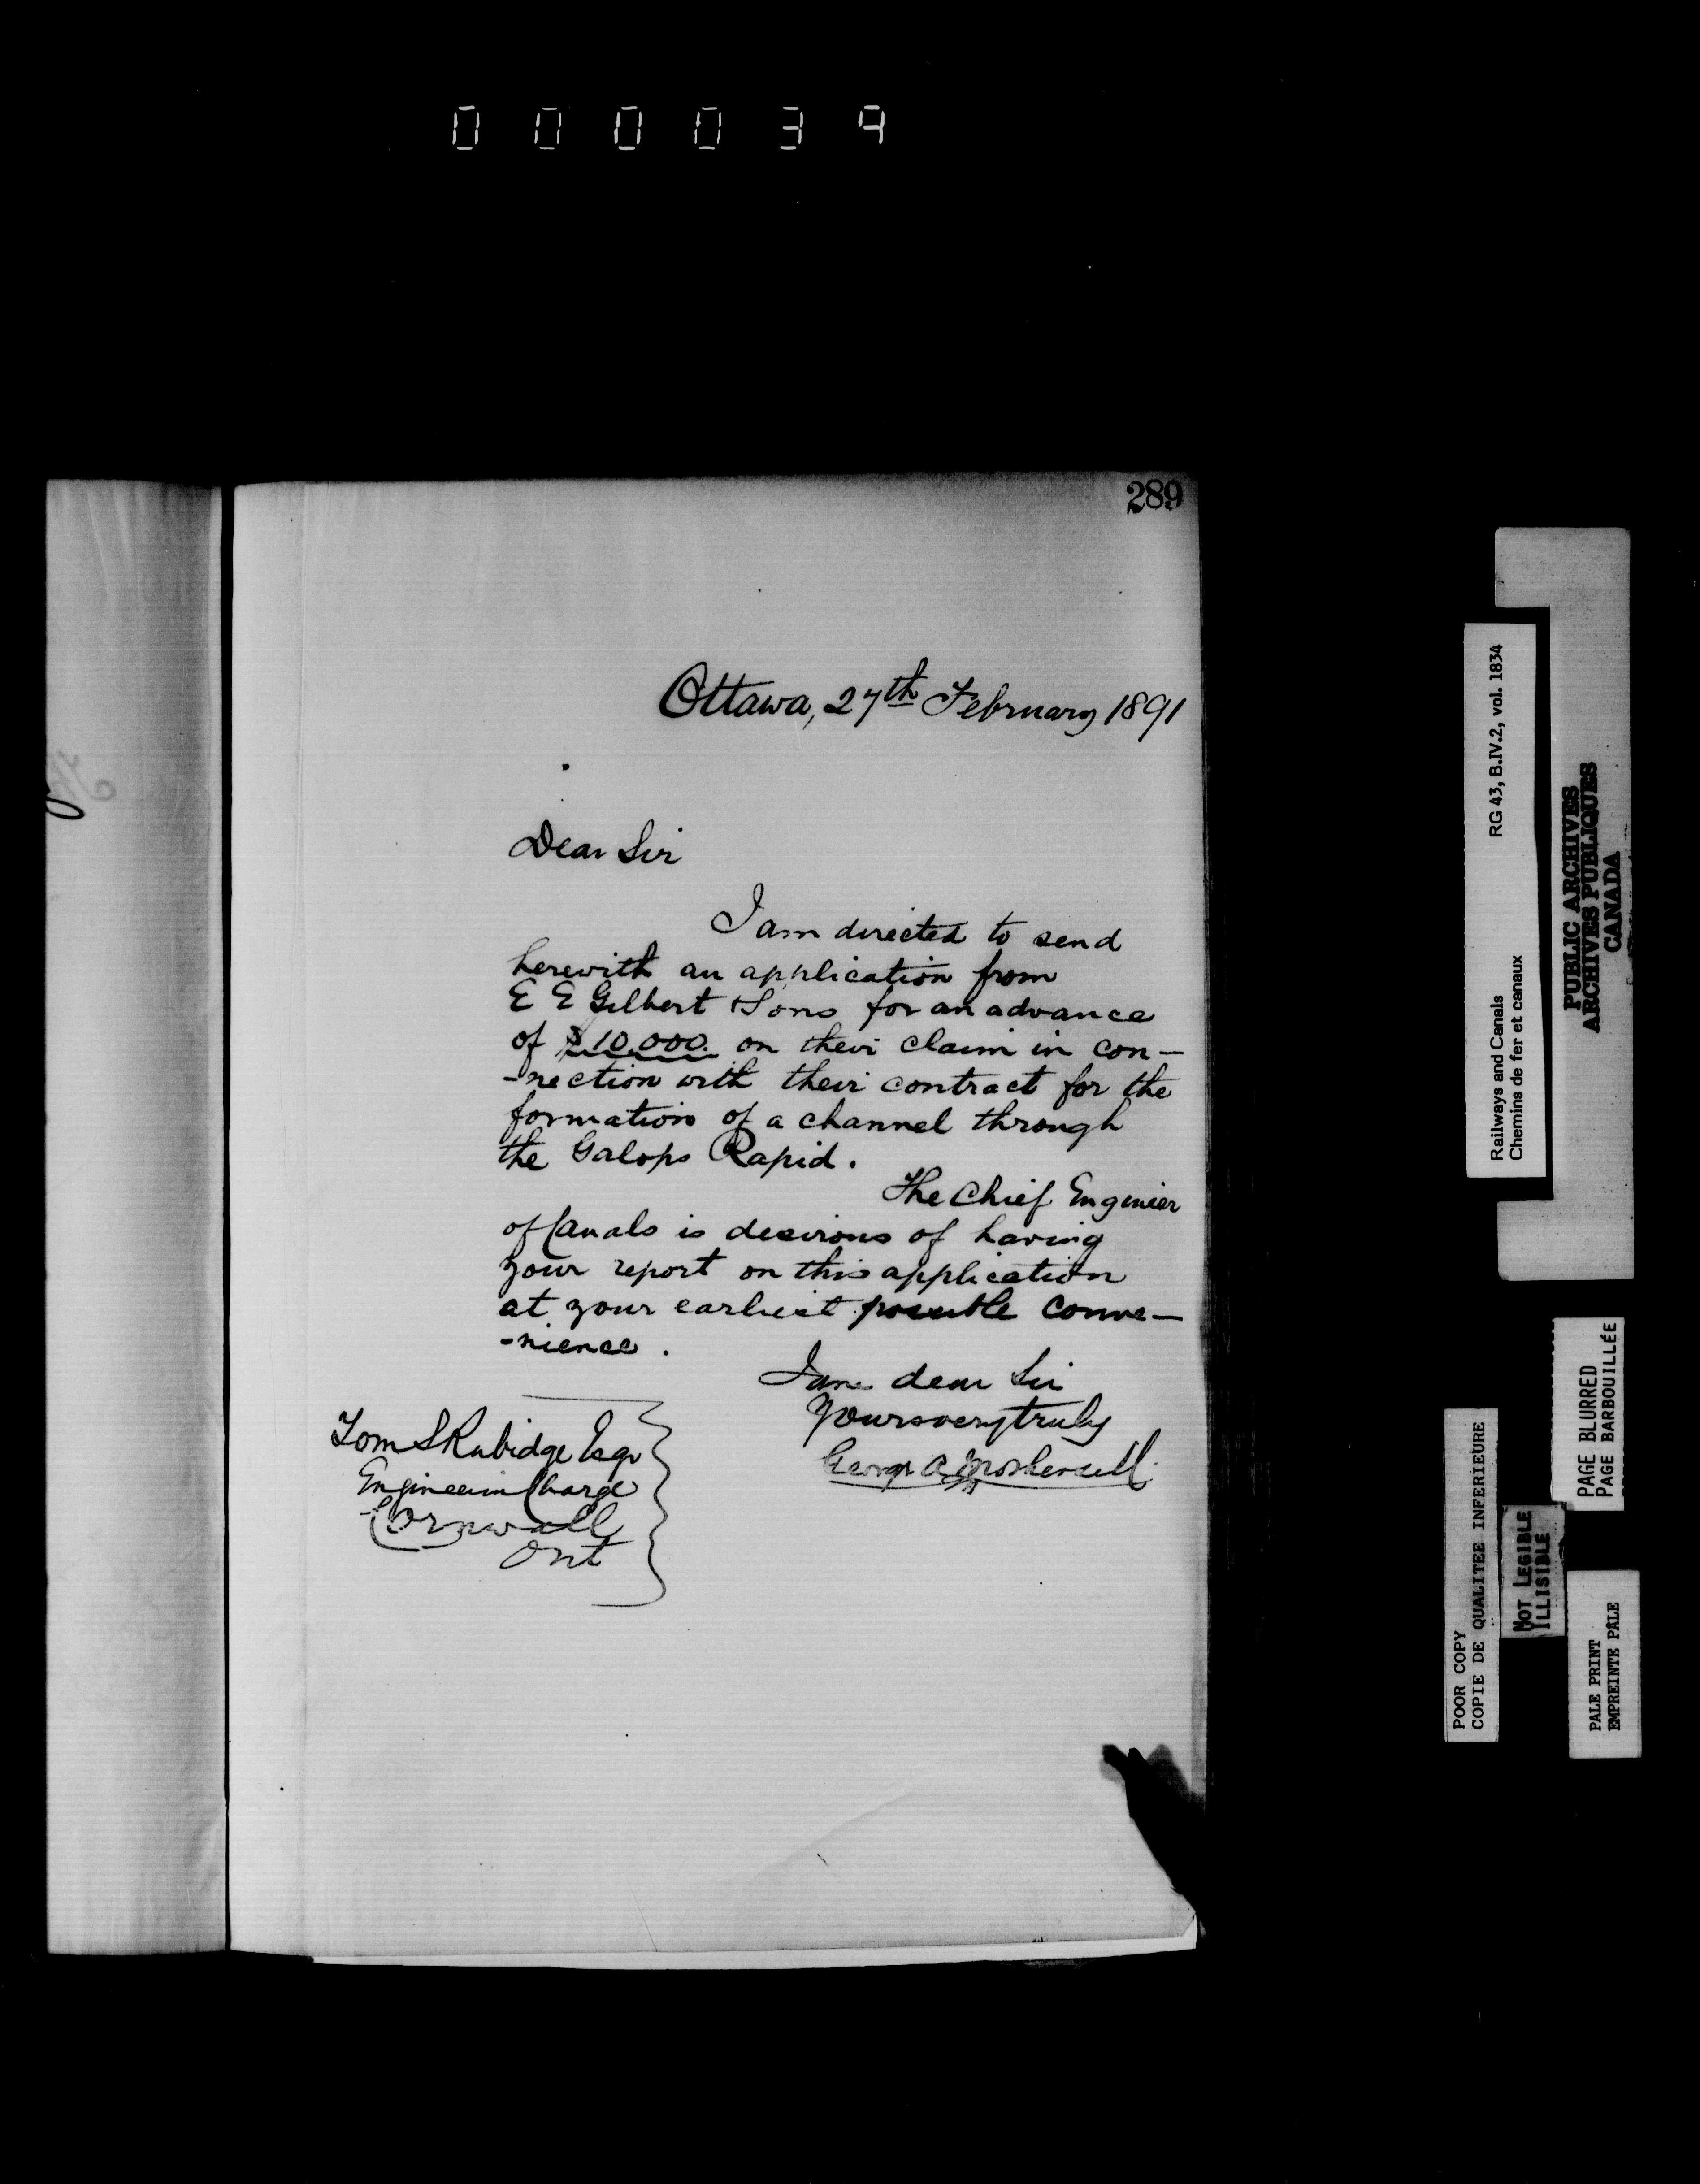 000039
289
Ottawa, 27th February 1891
Dear Sir
I am directed to send
herewith an application from
E E Gilbert & Sons for an advance
of $10,000. on their claim in con-
-nection with their contract for the
formation of a channel through
the Galops Rapid.
The Chief Engineer
of Canals is desirous of having
your report on this application
at your earliest possible conve-
-nience.
I am dear Sir
Yours very truly
George A
Tom S Rubidge Esqr
Engineer in Charge
Cornwall
Ont
Railways and Canals RG 43, B.IV.2, vol. 1834
Chemins de fer et canaux
PUBLIC ARCHIVES
ARCHIVES PUBLIQUES
CANADA
PAGE BLURRED
PAGE BARBOUILLÉE
POOR COPY
COPIE DE QUALITEE INFERIEURE
NOT LEGIBLE
ILLISIBLE
PALE PRINT
EMPREINTE PALE